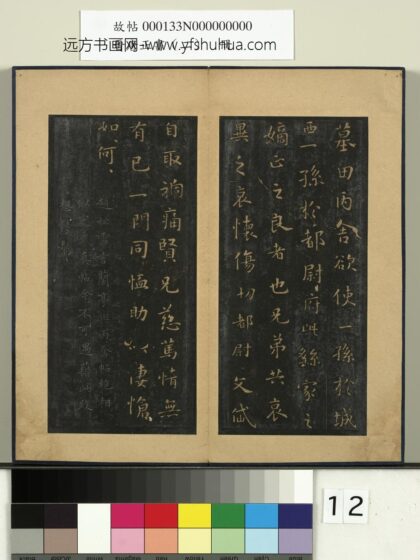 故帖 000133N000000000
远方书画网-www.yfshuhua.com
墓田丙舍欲使一孫於城
西一孫於都尉府此繇家之
嫡正之良者也兄弟共哀
異之哀懷傷切都尉文岱
自取禍痛賢兄慈篤情無
有已一門同恤助以悽愴
如何
12